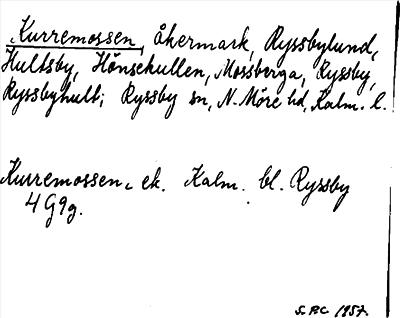 Kurremossen, åkermark, Ryssbylund,
Hultsby, Hönsekullen, Mossberga, Ryssby,
Ryssbyhult; Ryssby sn, N. Möre hd, Kalm. l.
Kurremossen, ek. Kalm. bl. Ryssby
4 G 9 g.
1957.